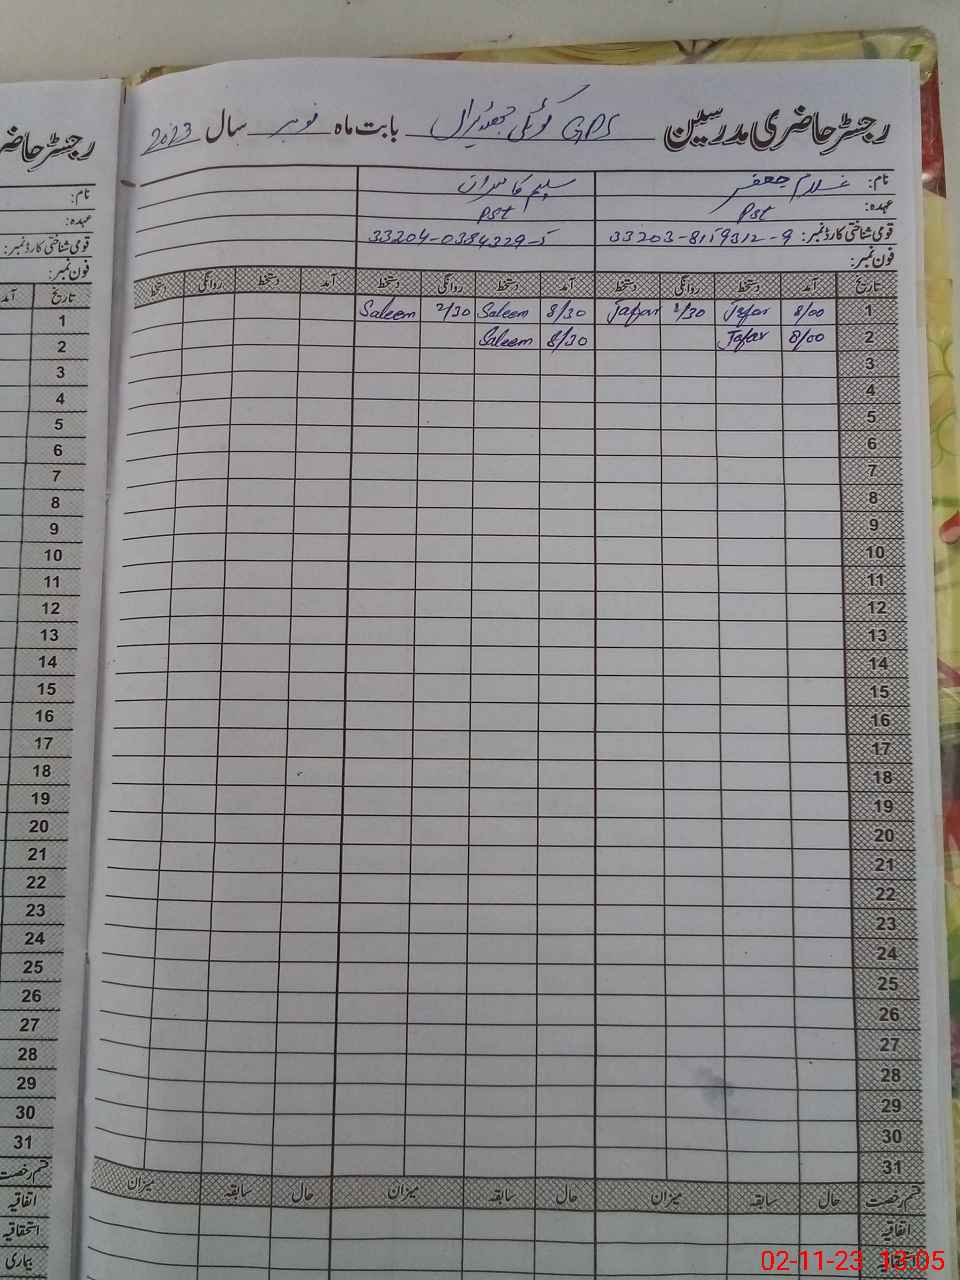 رجسٹر حاضری مدرسین GPS بابت ماہ نومبر سال 2023
نام: غلام جعفر سلیم کامران
عہدہ: Pst Pst
قومی شناختی کارڈ نمبر: 33203-8119312-9 33204-0384329-5
فون نمبر:
تاریخ آمد دستخط روانگی دستخط آمد دستخط روانگی دستخط آمد دستخط روانگی دستخط
1 8/00 Jafar 2/30 Jafar 8/30 Saleem 2/30 Saleem
2 8/00 Jafar 8/30 Saleem
3
4
5
6
7
8
9
10
11
12
13
14
15
16
17
18
19
20
21
22
23
24
25
26
27
28
29
30
31
قسم رخصت حال سابقہ میزان حال سابقہ میزان حال سابقہ میزان
اتفاقیہ
استحقاقیہ
رجسٹر حاضر
نام:
عہدہ:
قومی شناختی کارڈ نمبر:
فون نمبر:
تاریخ آمد
1
2
3
4
5
6
7
8
9
10
11
12
13
14
15
16
17
18
19
20
21
22
23
24
25
26
27
28
29
30
31
قسم رخصت
اتفاقیہ
استحقاقیہ
بیماری
02-11-23 13:05